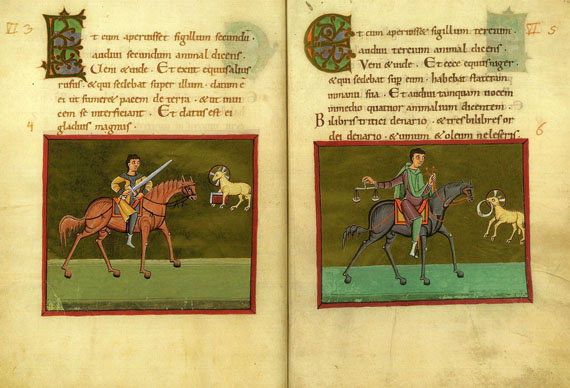 VI 3
Et cum aperuisset sigillum secundū ·
audiui secundum animal dicens ·
Veni & uide · Et exiit equus alius
rufus · & qui sedebat super illum · datum ē
ei ut sumeret pacem de terra · & ut inui
cem se interficiant · Et datus est ei
gladius magnus ·
4
VI 5
Et cum aperuisset sigillum tercium ·
audiui tercium animal dicens ·
Veni & uide · Et ecce equus niger
& qui sedebat sup eum · habebat stateram
in manu sua · Et audiui tamquam uocem
in medio quatuor animalium dicentem ·
Bilibris tritici denario · & tres bilibres or
dei denario · & uinum & oleum ne leseris ·
6